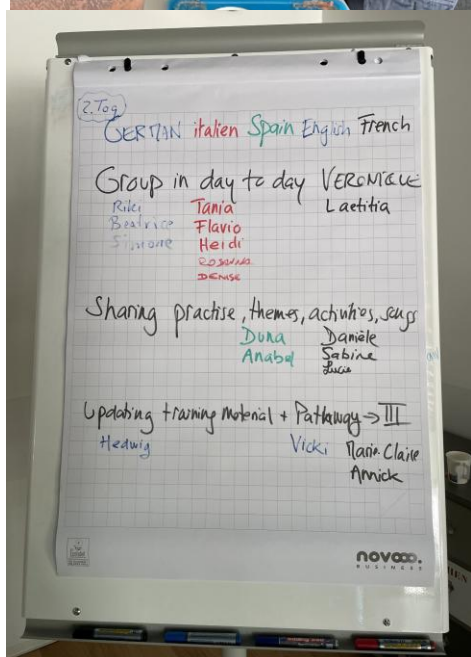 2. Tag
GERMAN italien Spain English French
Group in day to day VERONIQUE
Riki Tania Laetitia
Beatrice Flavio
Simone Heidi
ROSANNA
DENISE
Sharing practise, themes, activities, songs
Duna Danièle
Anabel Sabine
Lucie
Updating training material + Pathway → III
Hedwig Vicki Marie-Claire
Annick
novooo.
BUSINESS